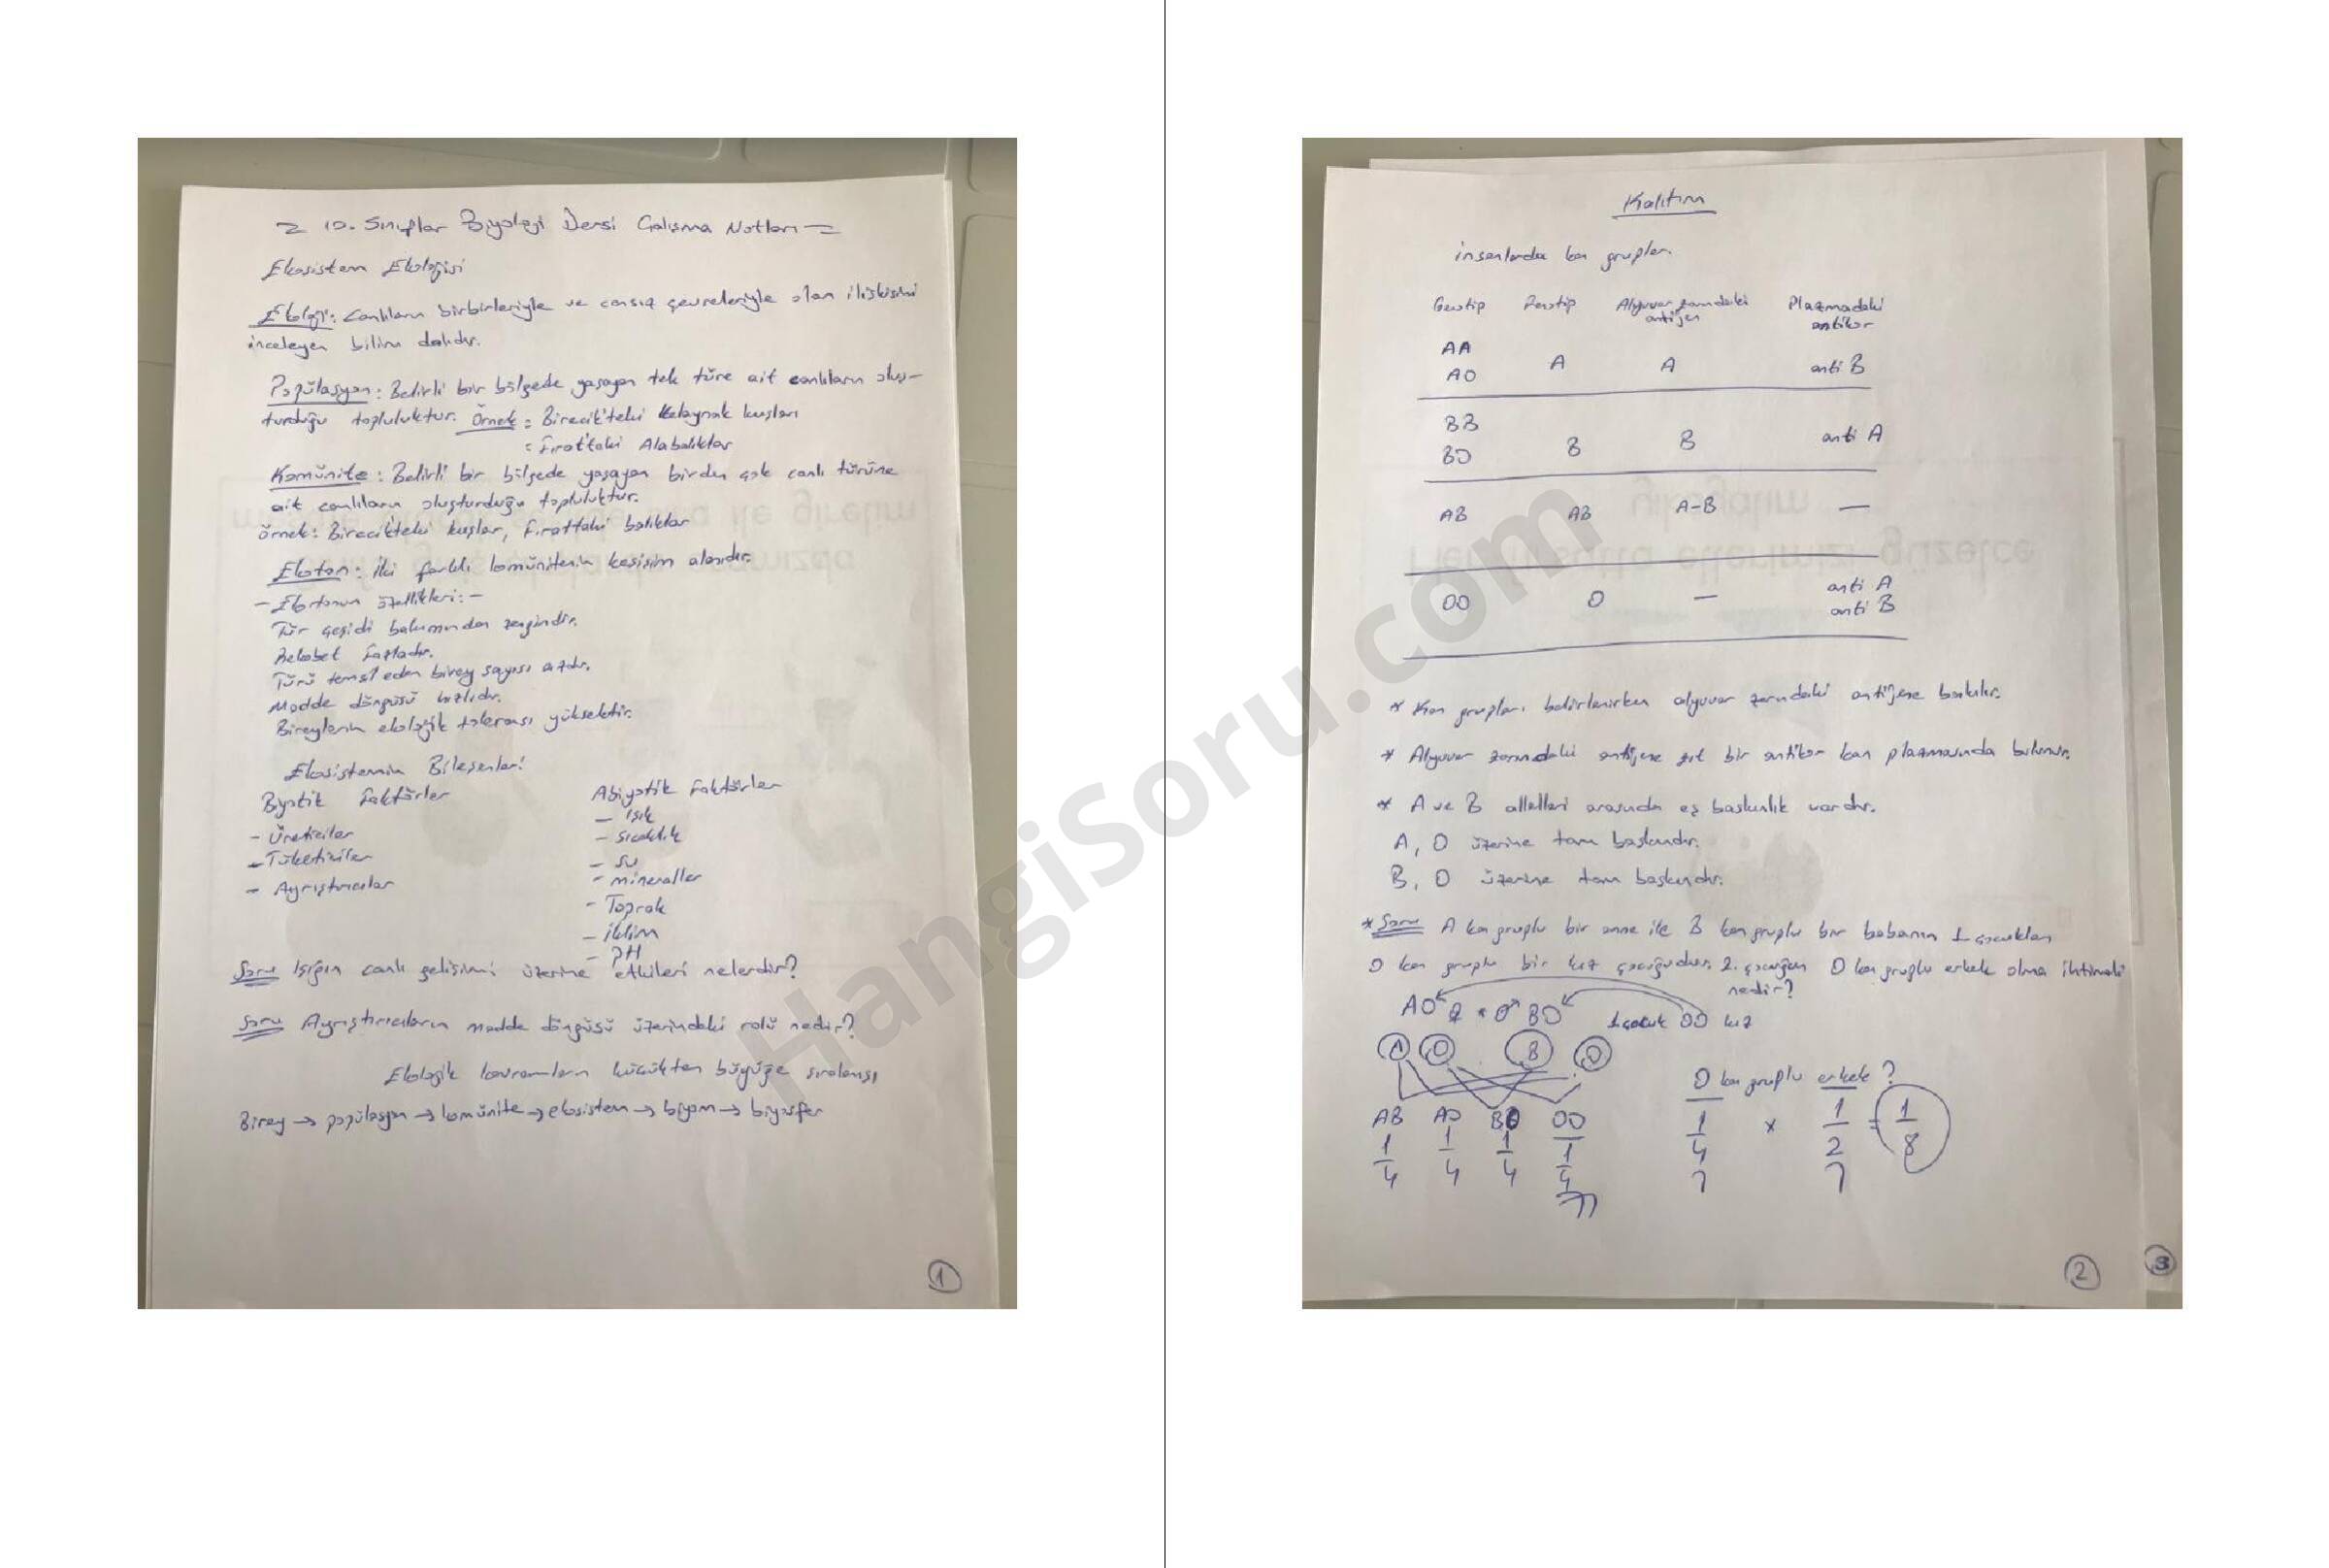 10. Sınıflar Biyoloji Dersi Çalışma Notları
Ekosistem Ekolojisi
Ekoloji: Canlıların birbirleriyle ve cansız çevreleriyle olan ilişkisini
inceleyen bilim dalıdır.
Popülasyon: Belirli bir bölgede yaşayan tek türe ait canlıların oluş-
turduğu topluluktur. Örnek: Birecik'teki Kelaynak kuşları
: Fırat'taki Alabalıklar
Komünite: Belirli bir bölgede yaşayan birden çok canlı türüne
ait canlıların oluşturduğu topluluktur.
Örnek: Birecik'teki kuşlar, Fırattaki balıklar
Ekoton: İki farklı komünitenin kesişim alanıdır.
- Ekotonun özellikleri: -
Tür çeşidi bakımından zengindir.
Rekabet fazladır.
Türü temsil eden birey sayısı azdır.
Madde döngüsü hızlıdır.
Bireylerin ekolojik toleransı yüksektir.
Ekosistemin Bileşenleri
Biyotik Faktörler
- Üreticiler
- Tüketiciler
- Ayrıştırıcılar
Abiyotik Faktörler
- Işık
- Sıcaklık
- Su
- mineraller
- Toprak
- iklim
- pH
Soru Işığın canlı gelişimi üzerine etkileri nelerdir?
Soru Ayrıştırıcıların madde döngüsü üzerindeki rolü nedir?
Ekolojik kavramların küçükten büyüğe sıralanışı
Birey → popülasyon → komünite → ekosistem → biyom → biyosfer
1
Kalıtım
insanlarda kan grupları
Genotip Fenotip Alyuvar zarındaki antijen Plazmadaki antikor
AA
AO A A anti B
BB
BO B B anti A
AB AB A-B —
OO O — anti A
anti B
* Kan grupları belirlenirken alyuvar zarındaki antijene bakılır.
* Alyuvar zarındaki antijene zıt bir antikor kan plazmasında bulunur.
* A ve B allelleri arasında eş baskınlık vardır.
A, O üzerine tam baskındır.
B, O üzerine tam baskındır.
* Soru A kan gruplu bir anne ile B kan gruplu bir babanın 1 çocukları
O kan gruplu bir kız çocuğudur. 2. çocuğun O kan gruplu erkek olma ihtimali
nedir?
AO ♀ * ♂ BO 1 çocuk OO kız
A O B O
O kan gruplu erkek?
AB AO BO OO
1/4 1/4 1/4 1/4
1/4 x 1/2 = 1/8
2
3
HangiSoru.com